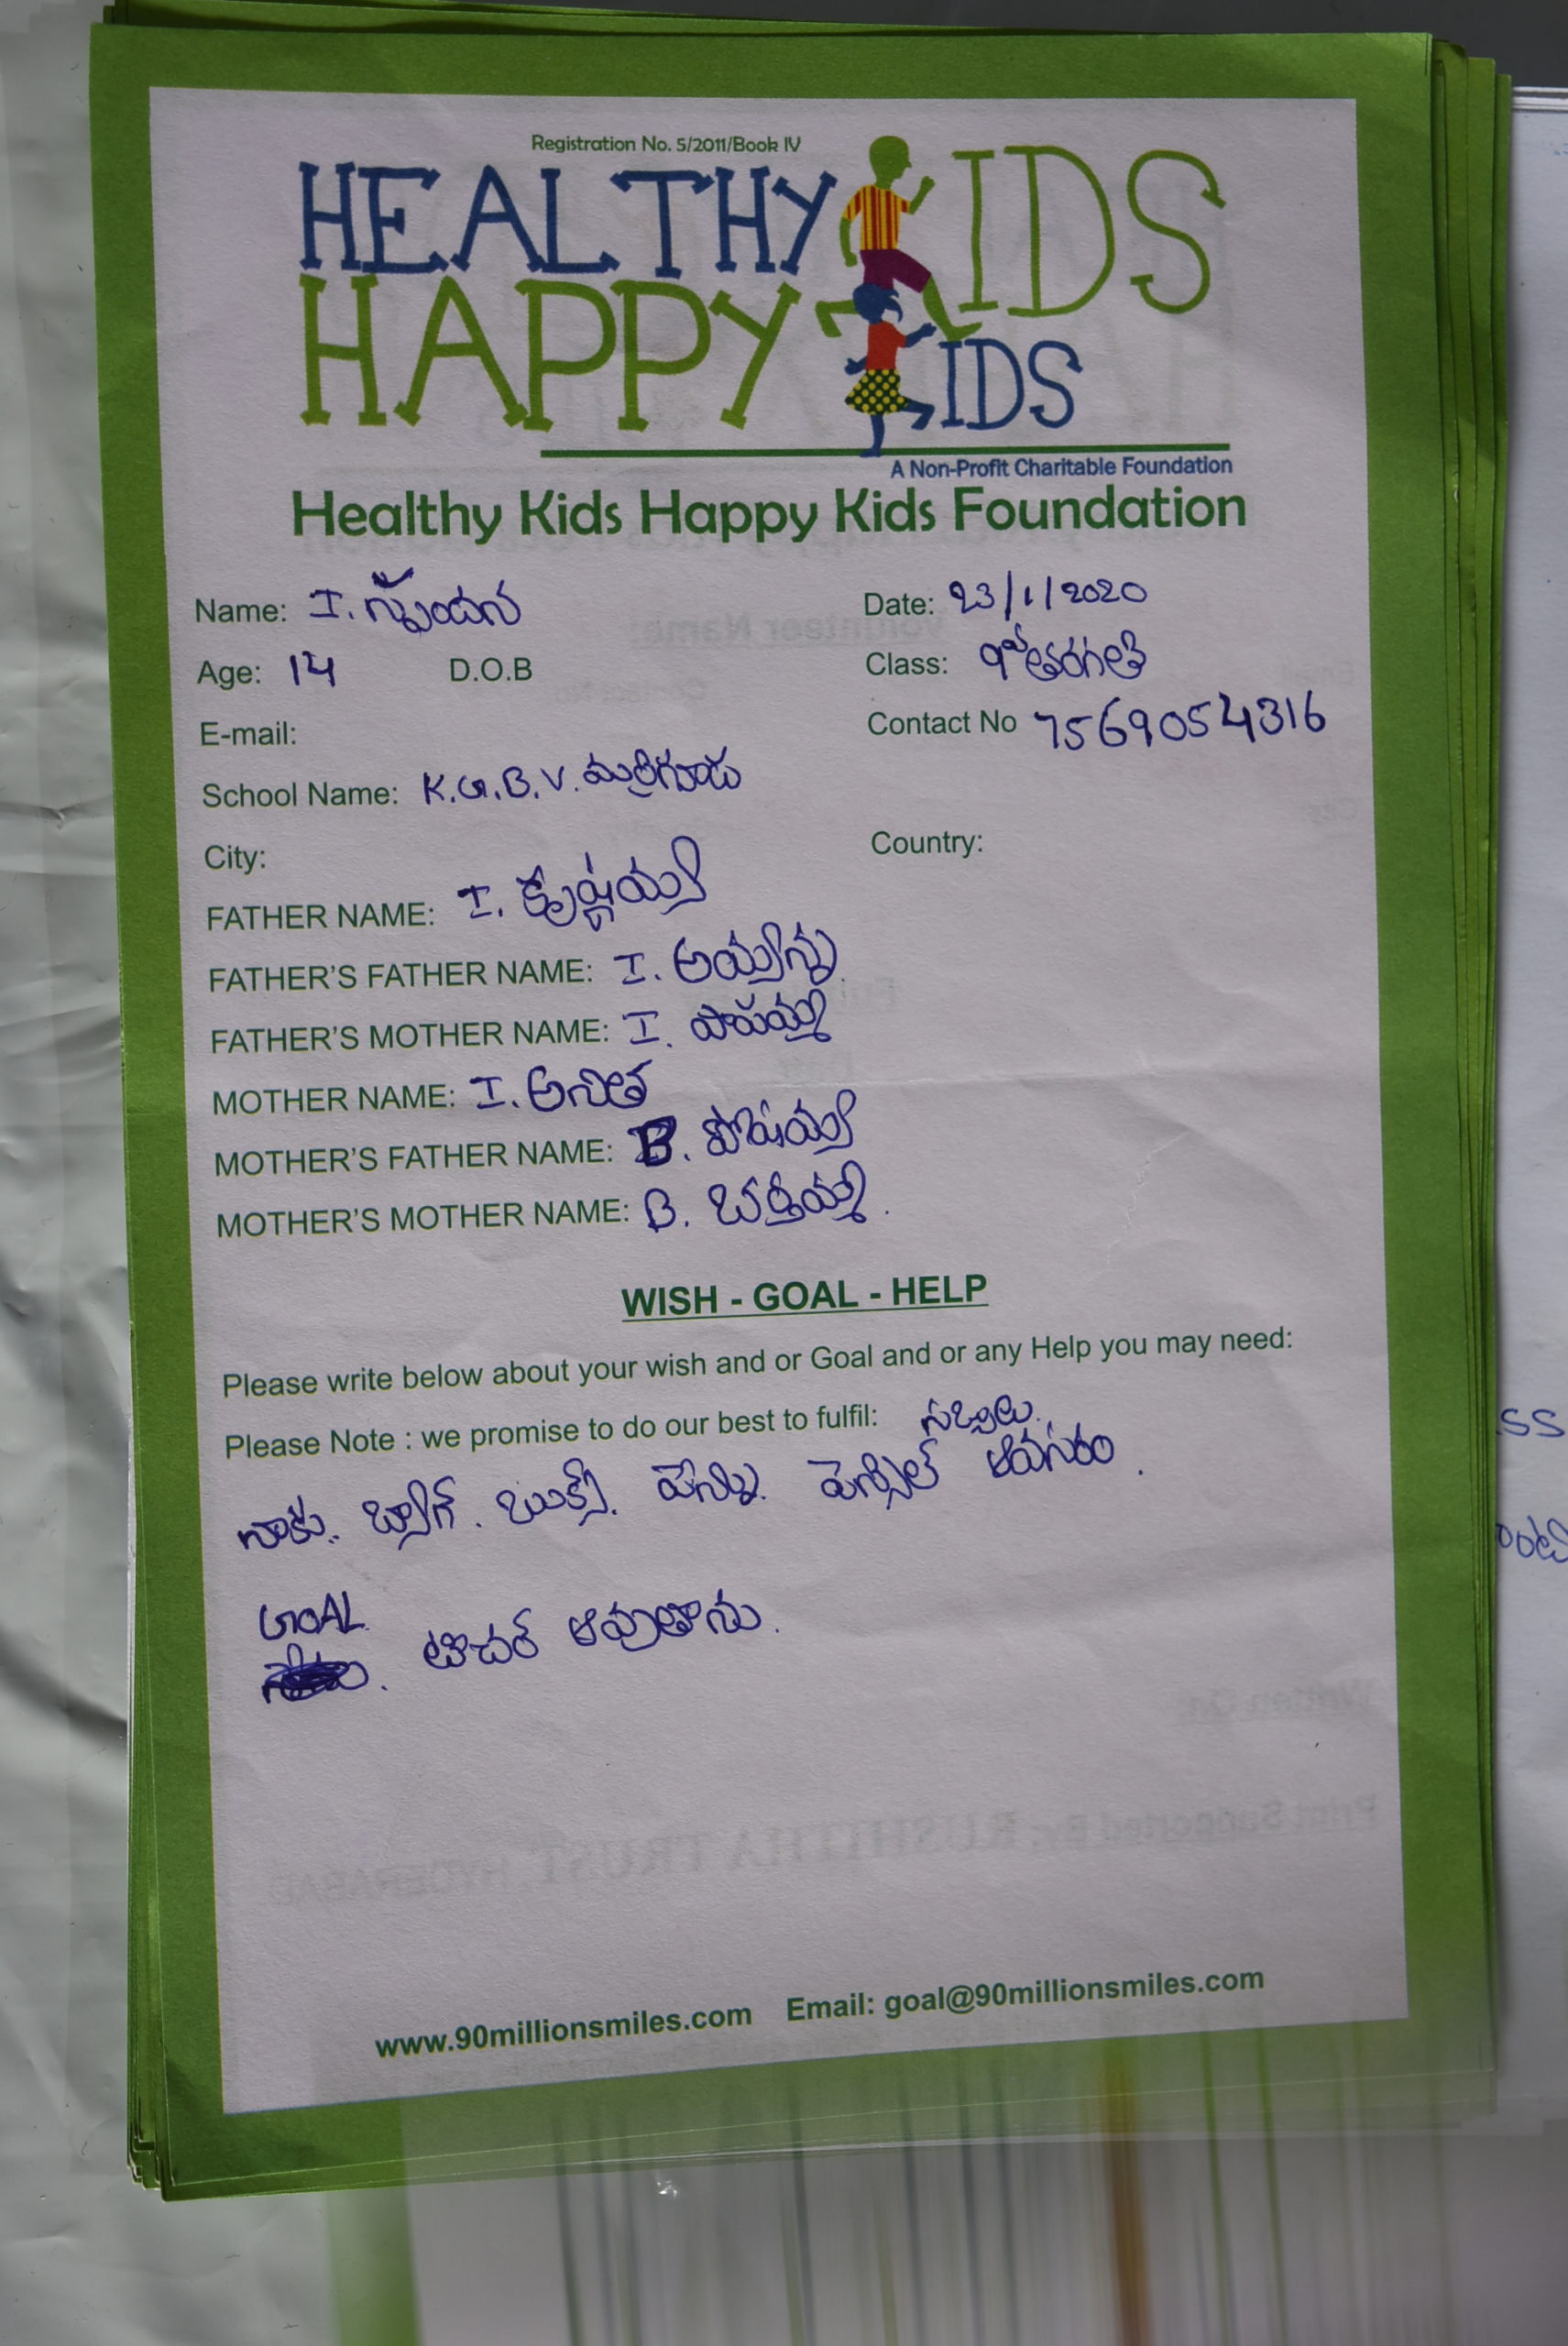 Registration No. 5/2011/Book IV
HEALTHY KIDS
HAPPY KIDS
A Non-Profit Charitable Foundation
Healthy Kids Happy Kids Foundation
Name: I. స్పందన Date: 23/1/2020
Age: 14 D.O.B Class: 9వ తరగతి
E-mail: Contact No 7569054316
School Name: K.G.B.V. మర్రిగూడ
City: Country:
FATHER NAME: I. కృష్ణయ్య
FATHER'S FATHER NAME: I. అయ్యన్న
FATHER'S MOTHER NAME: I. పాపమ్మ
MOTHER NAME: I. అనిత
MOTHER'S FATHER NAME: B. పోషయ్య
MOTHER'S MOTHER NAME: B.
WISH - GOAL - HELP
Please write below about your wish and or Goal and or any Help you may need:
Please Note : we promise to do our best to fulfil: సబ్బులు.
నాకు. బ్యాగ్. బుక్స్. పెన్ను. పెన్సిల్ అవసరం.
GOAL
టీచర్ అవుతాను.
www.90millionsmiles.com Email: goal@90millionsmiles.com